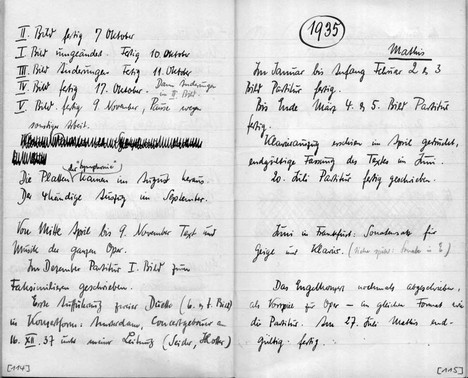 II. Bild fertig 7 Oktober
I. Bild umgeändert. Fertig 10. Oktober
III. Bild Änderungen Fertig 11. Oktober
IV. Bild fertig 17. Oktober. Dann Änderungen
in III. Bild.
V. Bild fertig 9 November, Pause wegen
sonstiger Arbeit.
(die "Symphonie")
Die Platten kamen im August heraus.
Der 4händige Auszug im September.
Von Mitte April bis 9. November Text und
Musik der ganzen Oper.
Im Dezember Partitur I. Bild zum
Faksimilieren geschrieben.
Erste Aufführung zweier Duette (6. u. 7. Bild)
in Konzertform: Amsterdam, Concertgebouw am
16. XII. 37 unter meiner Leitung
[114]
1935
Mathis
Im Januar bis Anfang Februar 2 & 3
Bild Partitur fertig.
Bis Ende März 4. & 5. Bild Partitur
fertig.
Klavierauszug erschien im April gedruckt,
endgültige Fassung des Textes im Juni.
20. Juli Partitur fertig geschrieben.
Juni in Frankfurt: Sonatensatz für
Geige und Klavier. (siehe später: Sonate in E.)
Das Engelkonzert nochmals abgeschrieben,
als Vorspiel zur Oper – im gleichen Format wie
die Partitur. Am 27. Juli Mathis end-
gültig fertig.
[115]